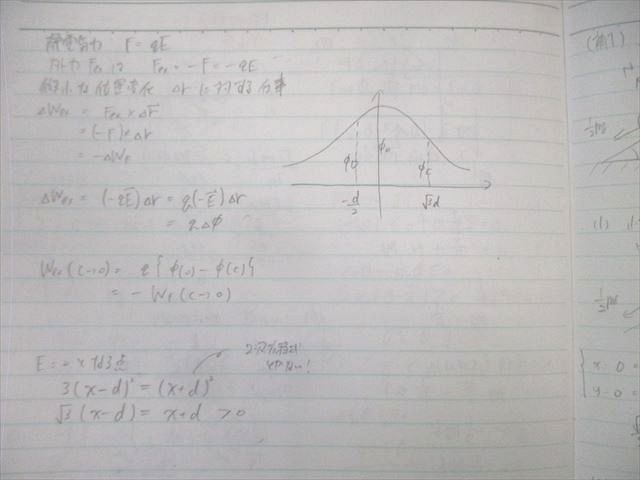 静電気力 F = qE
外力 Fex は Fex = -F = -qE
微小な位置変化 Δr に対する仕事
ΔWex = Fex × Δr
= (-F) × Δr
= -ΔWF
ΔWex = (-qE)Δr = q(-E)Δr
= qΔφ
Wex(C→0) = q{φ(0) - φ(C)}
= -WF(C→0)
φD
φ0
φC
-d/2
√3d
E = 0 となる点
2次方程式
3(x-d)² = (x+d)²
√3(x-d) = x+d > 0
(1)
x = 0
y = 0